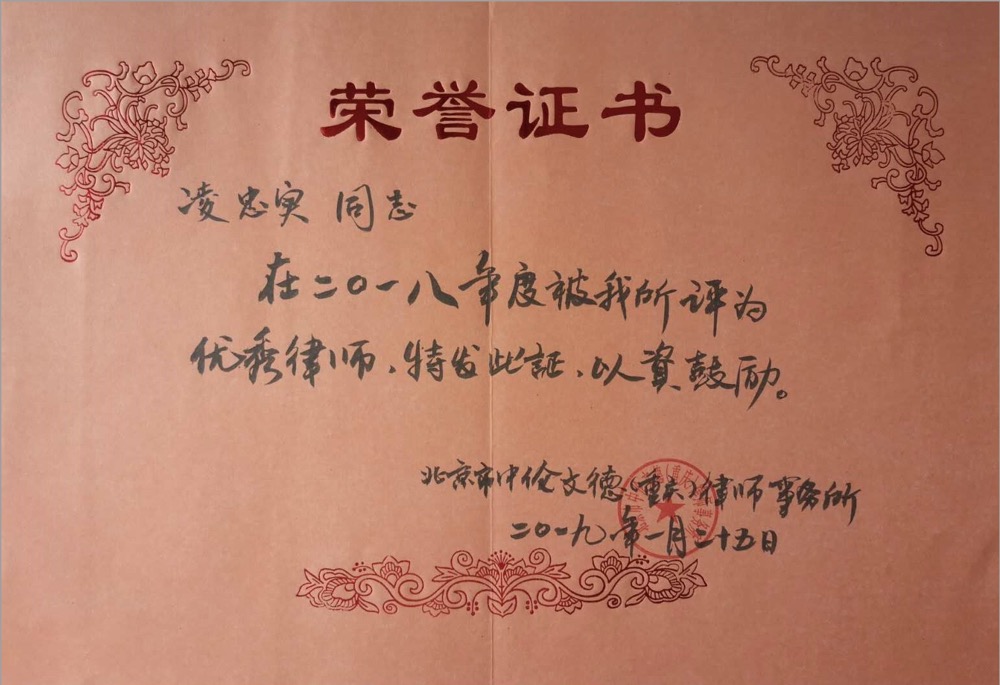 荣誉证书
凌忠实 同志
在二〇一八年度被我所评为
优秀律师、特发此証、以資鼓励。
北京市中伦文德(重庆)律师事务所
二〇一九年一月二十五日